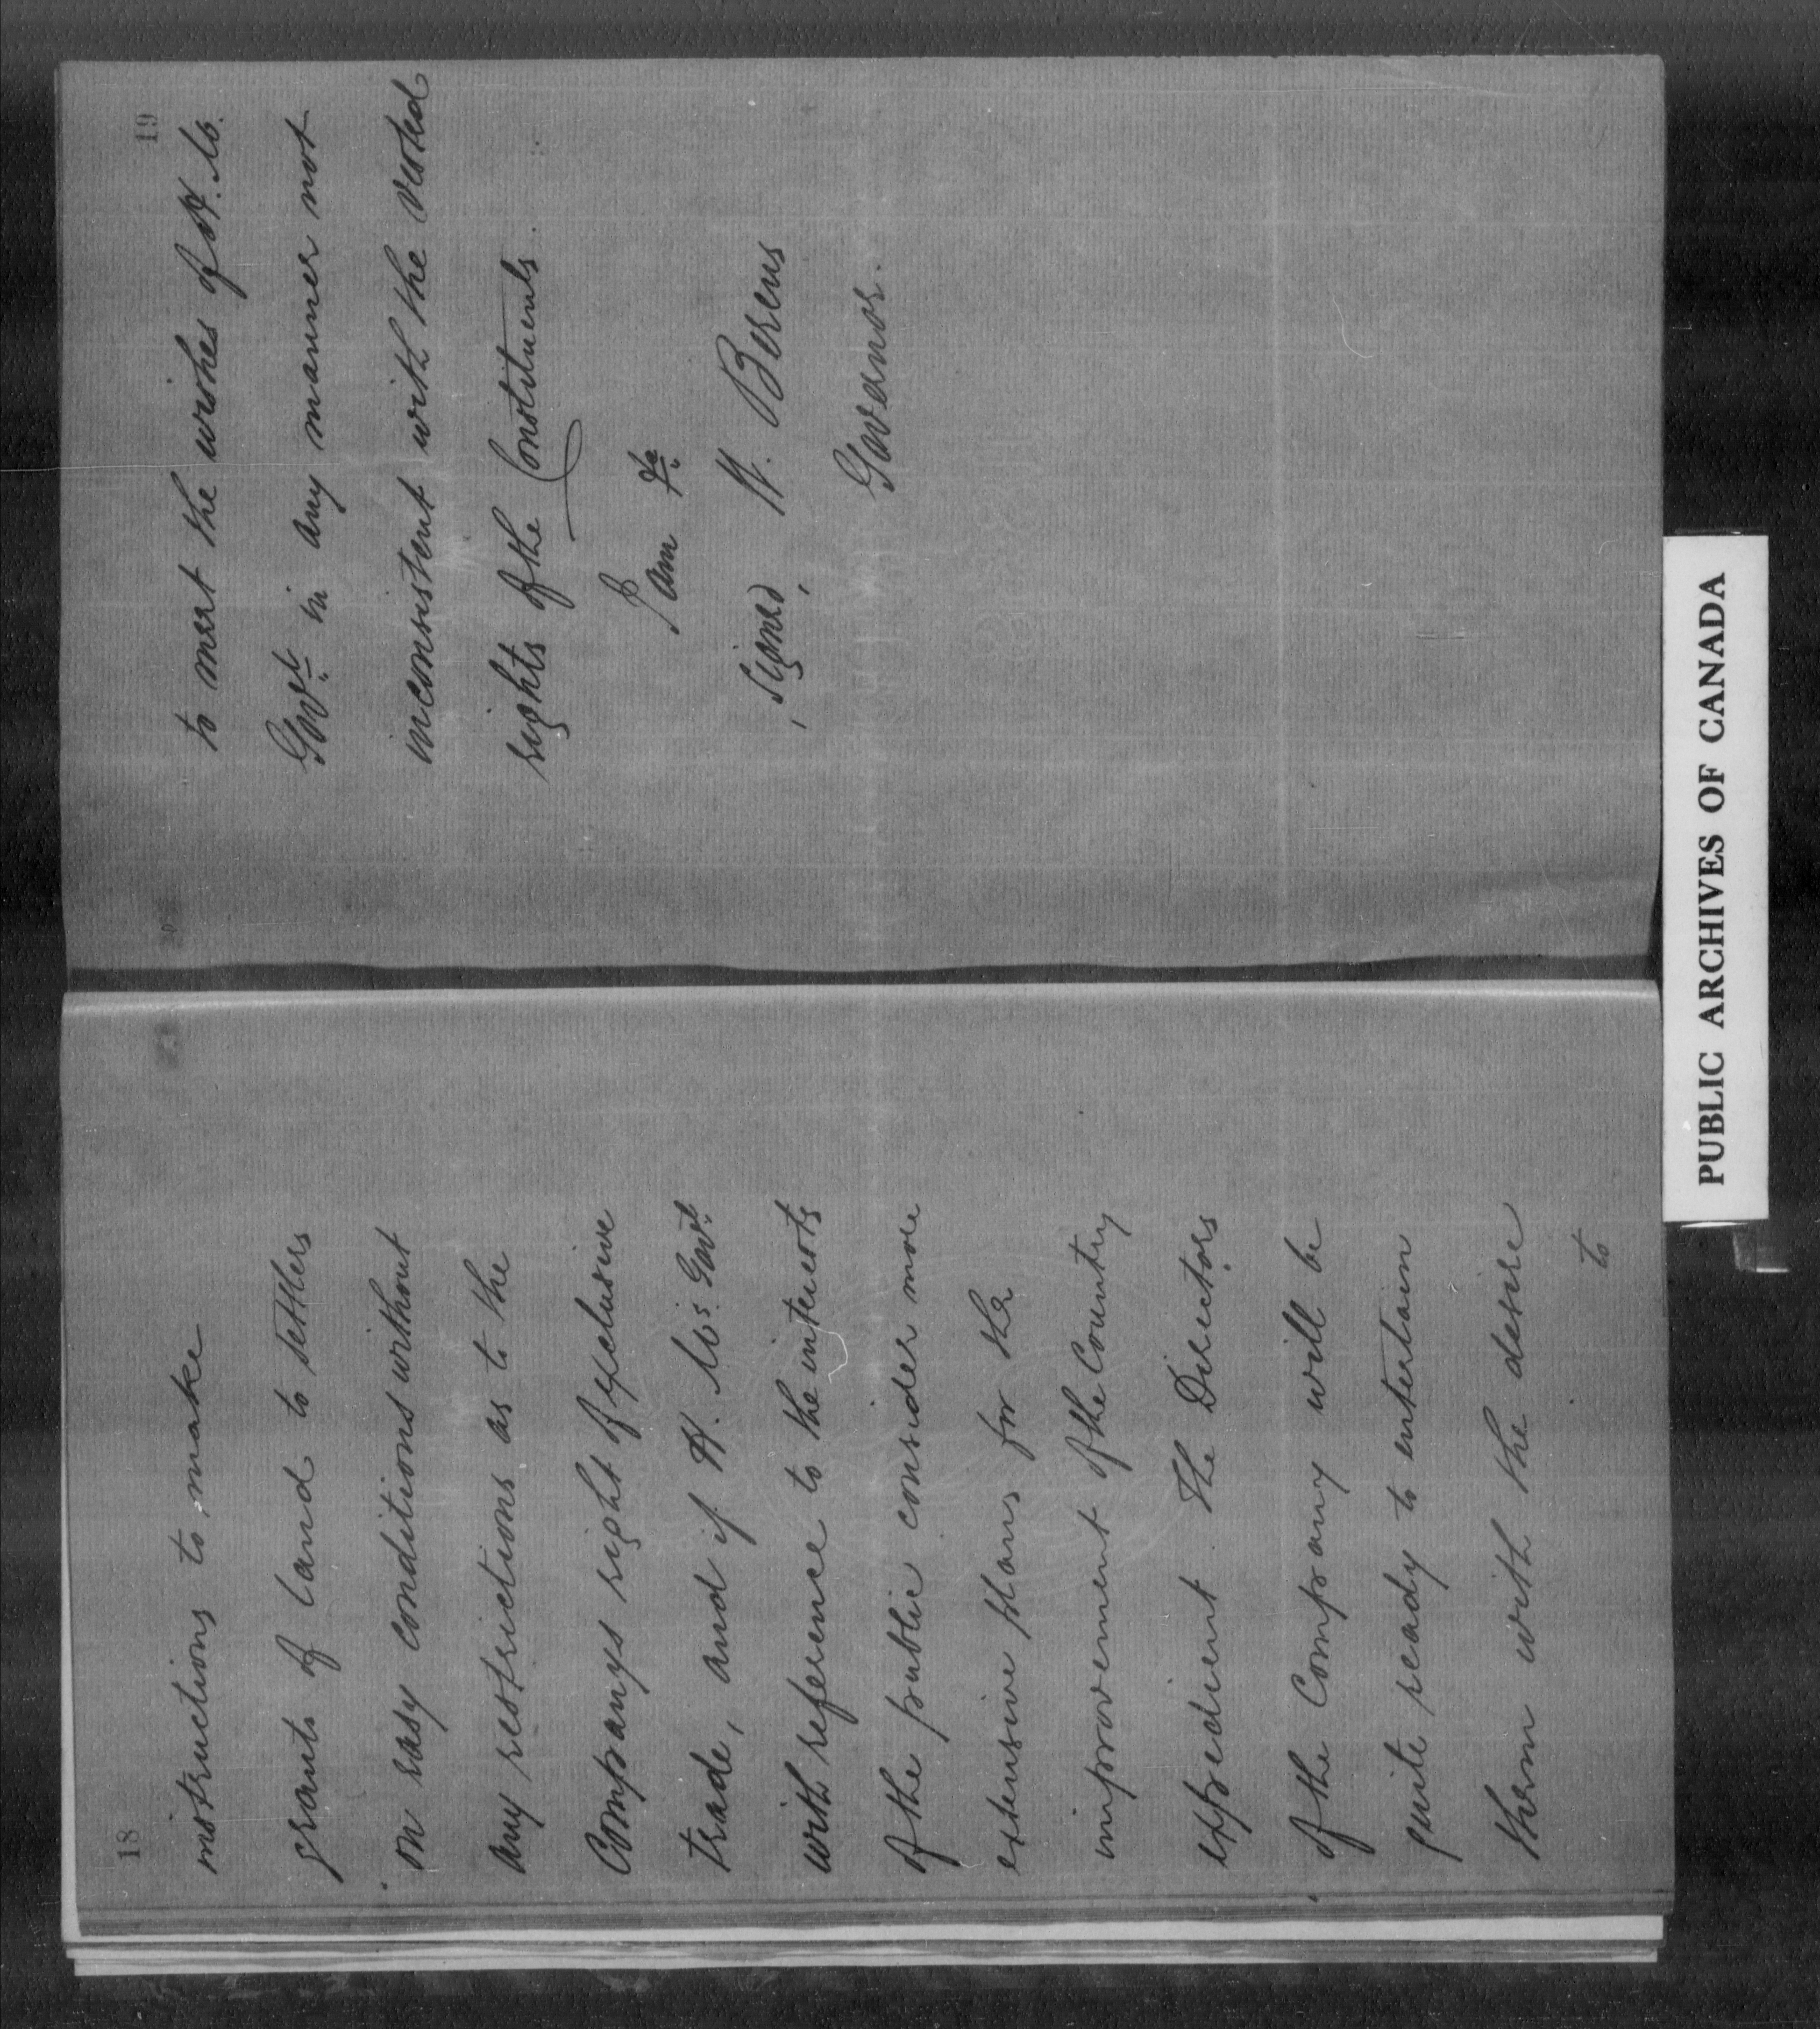 18
instructions to make
grants of land to settlers
on easy conditions without
any restrictions as to the
Companys right of exclusive
trade, and if H. Ms. Govt.
with reference to the interests
of the public consider more
extensive plans for the
improvement of the Country
expedient the Directors
of the Company will be
quite ready to entertain
them with the desire
to
19
to meet the wishes of H. Ms.
Govt. in any manner not
inconsistent with the vested
rights of the Constituents
I am &c
Signed, H. Berens
Governor.
PUBLIC ARCHIVES OF CANADA